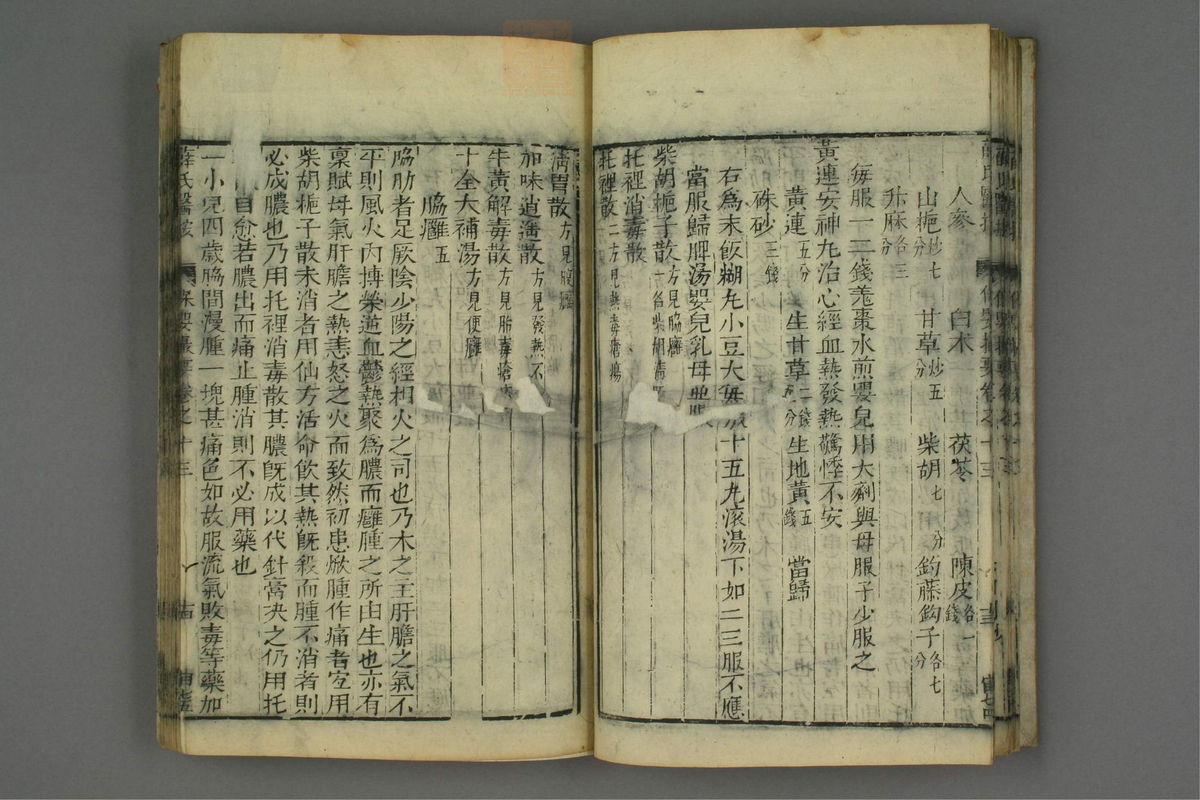 人參　白术　茯苓　陳皮各一錢
山梔炒七分　甘草炒五分　柴胡七分　鈎藤鈎子各七分
升麻各三分
每服一二錢羗棗水煎嬰兒用大劑與母服子少服之
黃連安神丸治心經血熱發熱驚悸不安
黃連五分　生甘草二錢五分　生地黃五錢　當歸
硃砂三錢
右爲末飯糊丸小豆大每服十五丸滚湯下如二三服不應
當服歸脾湯嬰兒乳母並服
柴胡梔子散方見脇癰一名柴胡清
托裡消毒散
托裡散二方見熱毒瘡瘍
清胃散方見腮癰
加味逍遥散方見發熱不
牛黃解毒散方見胎毒瘡
十全大補湯方見便癰
脇癰五
脇肋者足厥陰少陽之經相火之司也乃木之主肝膽之氣不
平則風火內搏榮逆血鬱熱聚爲膿而癰腫之所由生也亦有
禀賦母氣肝膽之熱恚怒之火而致然初患焮腫作痛者宜用
柴胡梔子散未消者用仙方活命飲其熱旣殺而腫不消者則
必成膿也乃用托裡消毒散其膿旣成以代針膏决之仍用托
自愈若膿出而痛止腫消則不必用藥也
一小兒四歲脇間漫腫一塊甚痛色如故服流氣敗毒等藥加
薛氏醫按　保嬰撮要卷之十三